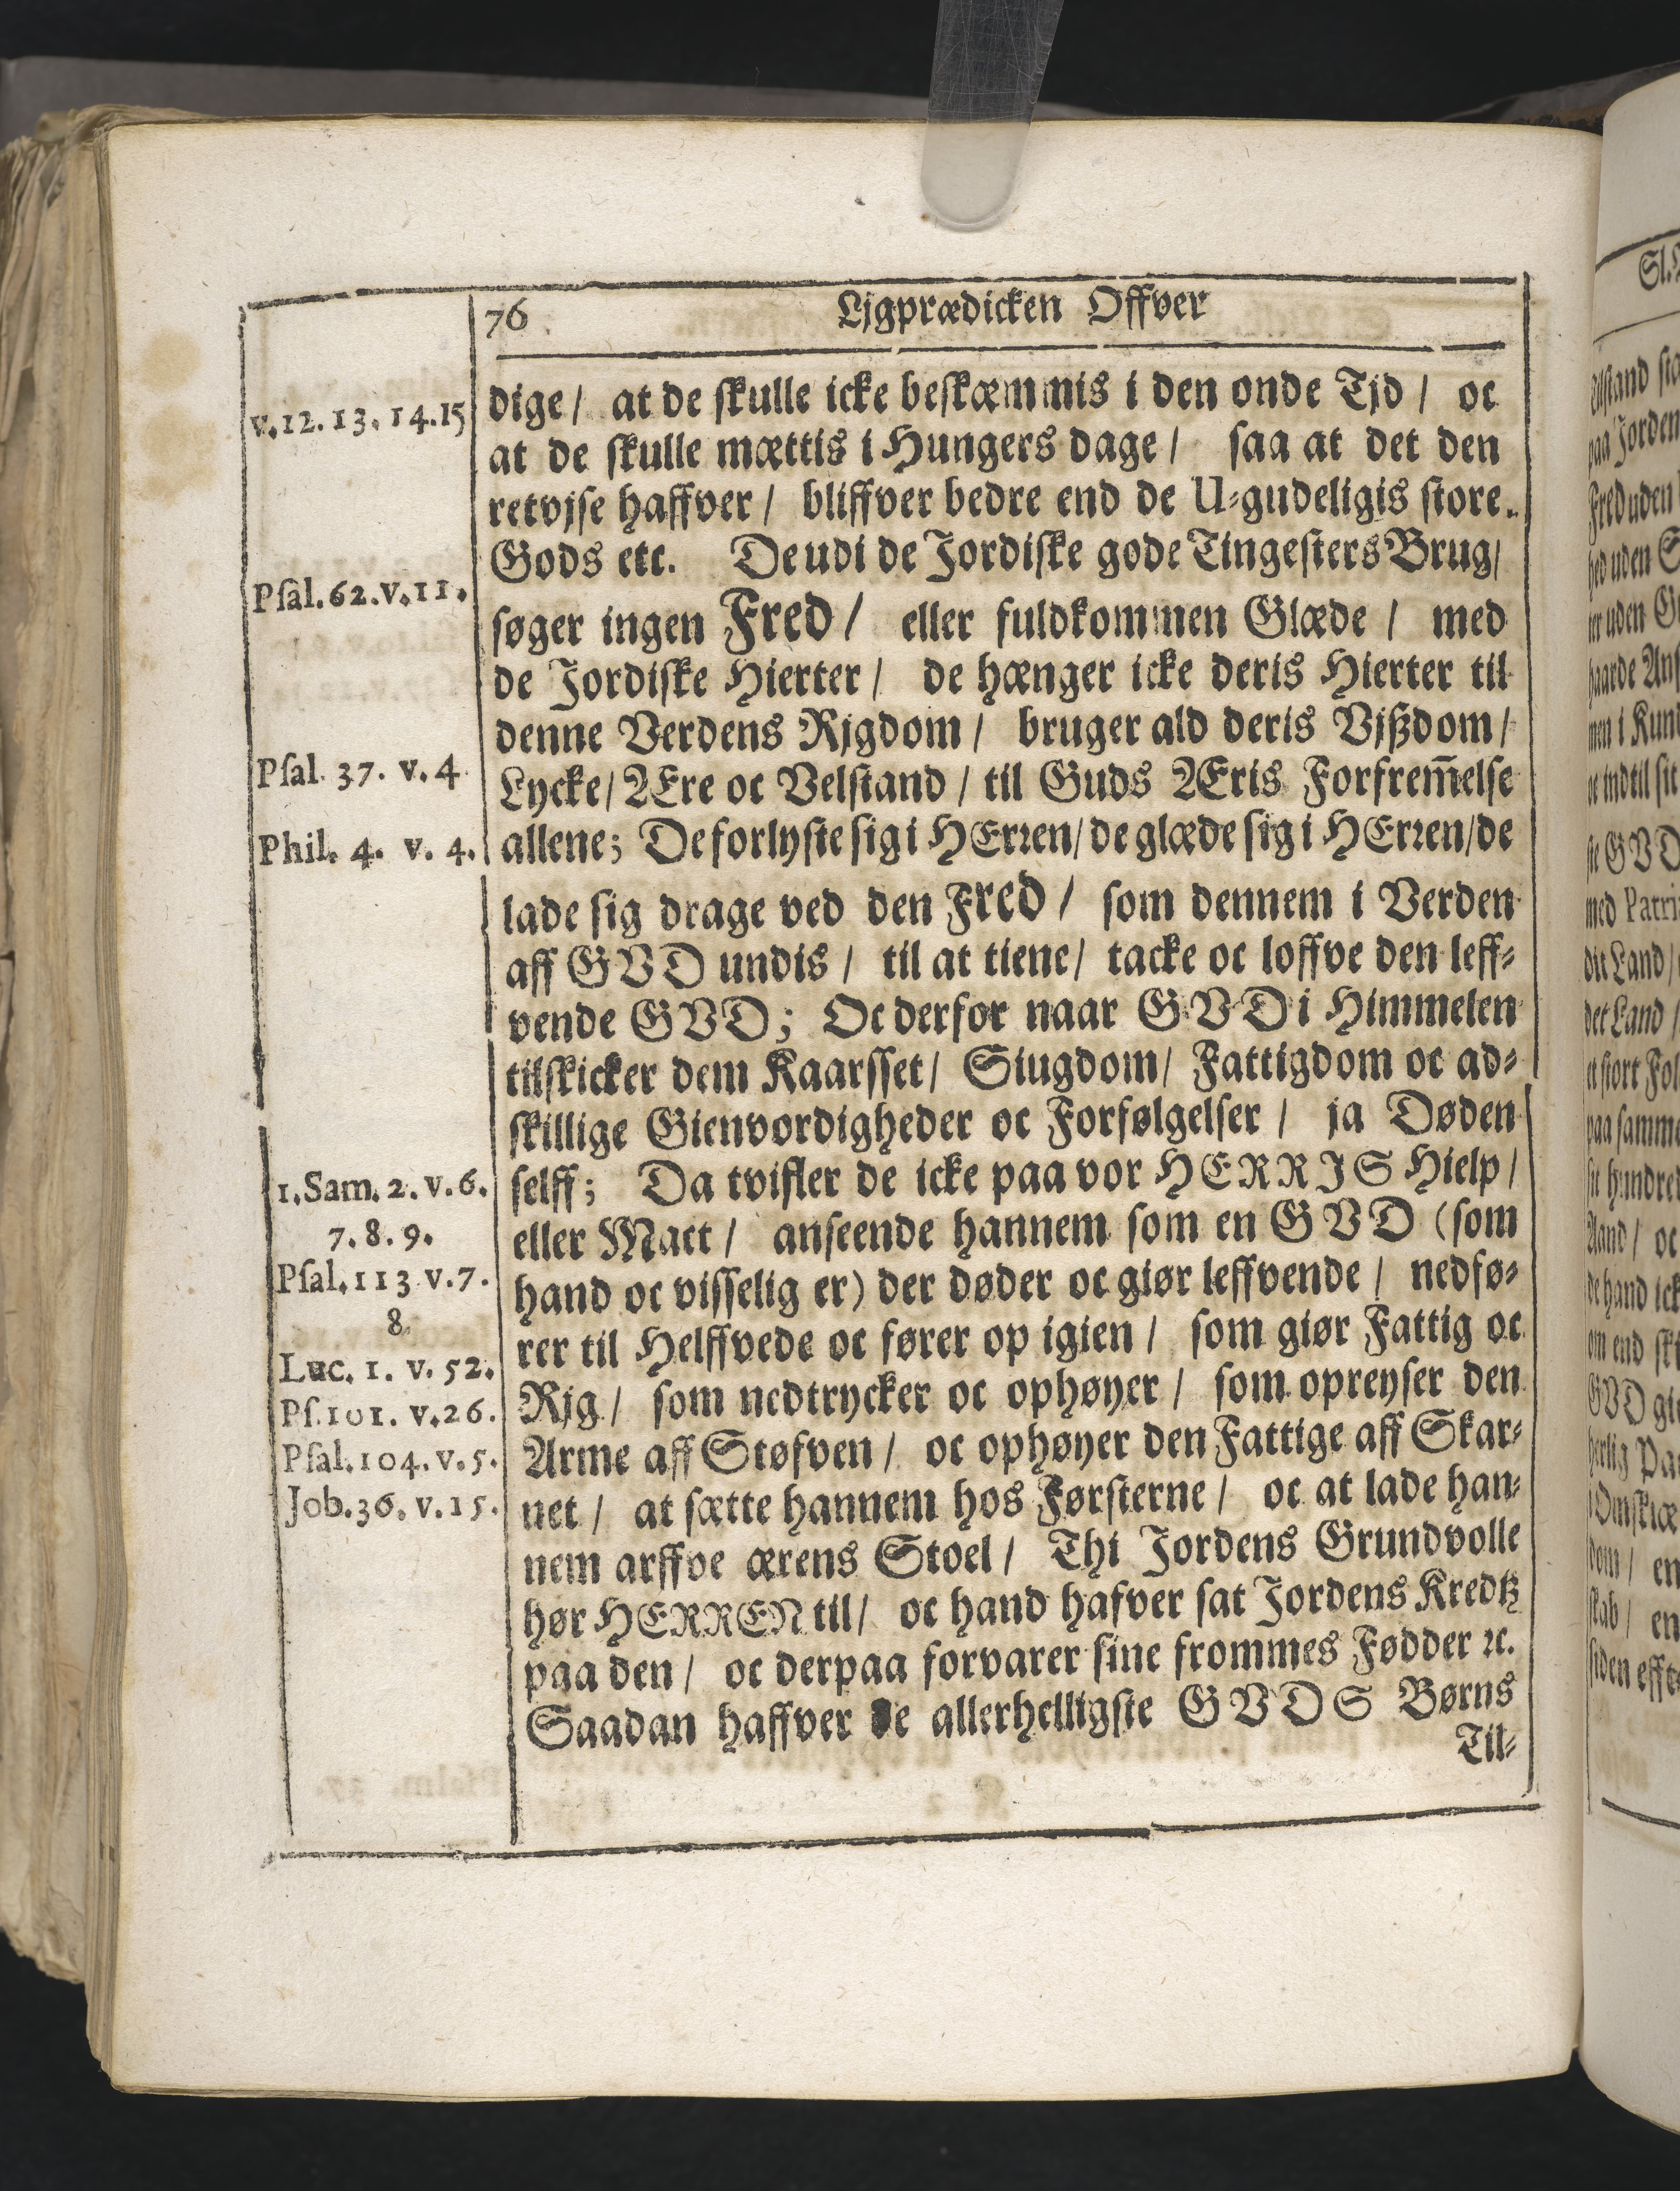 76 Ljgprædicken Offver
v.12.13.14.15
dige / at de skulle icke beskæmmis i den onde Tjd / oc
at de skulle mættis i Hungers dage / saa at det den
retvjse haffver / bliffver bedre end de U-gudeligis store
Gods etc. De udi de Jordiske gode Tingesters Brug /
Psal.62.v.11.
søger ingen Fred / eller fuldkommen Glæde / med
de Jordiske Hierter / de hænger icke deris Hierter til
denne Verdens Rjgdom / bruger ald deris Vjßdom /
Psal. 37. v. 4
Lycke / Ære oc Velstand / til Guds Æris Forfrem̅else
Phil. 4. v. 4.
allene; De forlyste sig i HErren / de glæde sig i HErren / de
lade sig drage ved den Fred / som dennem i Verden
aff GVD undis / til at tiene / tacke oc loffve den leff-
vende GVD; Oc derfor naar GVD i Himmelen
tilskicker dem Kaarsset / Siugdom / Fattigdom oc ad-
skillige Gienvordigheder oc Forfølgelser / ja Døden
1.Sam.2.v.6.
selff; Da tvifler de icke paa vor HERRJS Hielp /
7.8.9.
eller Mact / anseende hannem som en GVD (som
Psal.113 v.7.
hand oc visselig er) der døder oc giør leffvende / nedfø-
8.
rer til Helffvede oc fører op igien / som giør Fattig oc
Luc. 1. v. 52.
Rjg / som nedtrycker oc ophøyer / som opreyser den
Ps.101. v.26.
Arme aff Støfven / oc ophøyer den Fattige aff Skar-
Psal.104.v.5.
net / at sætte hannem hos Førsterne / oc at lade han-
Job.36.v.15.
nem arffve ærens Stoel / Thi Jordens Grundvolle
hør HERREN til / oc hand hafver sat Jordens Kredtz
paa den / oc derpaa forvarer sine frommes Fødder ꝛc.
Saadan haffver de allerhelligste GVDS Børns
Til-